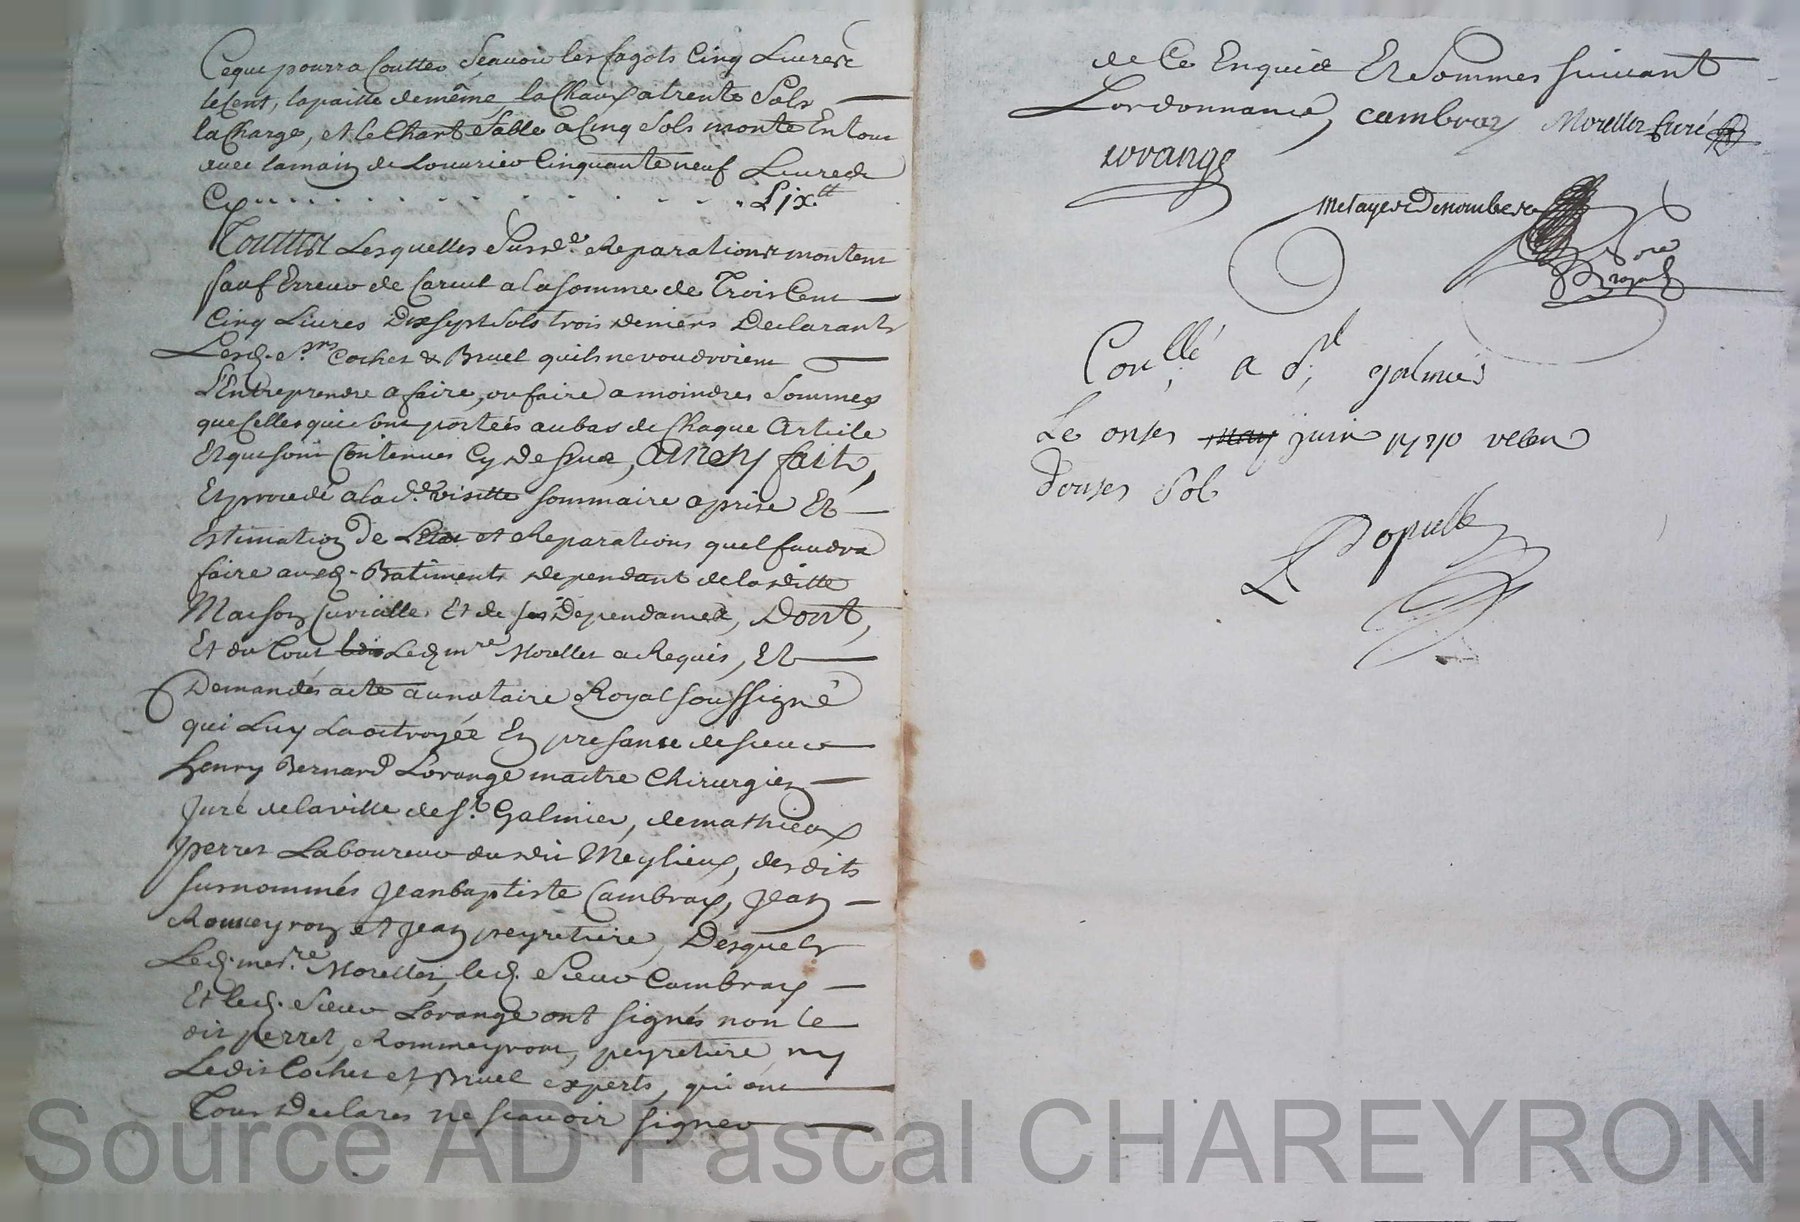 Ceque pourra Coutter Scavoir les fagots Cinq Livres
le Cent, la paille de même la Chaux a trente Sols
la Charge, et le Chart Sable a Cinq Sols monte En tout
avec la main de Louvrier Cinquante neuf Livres
Cy . . . . . . . . . . . Lix.tt
Touttes Lesquelles Susd.es Reparations montent
sauf Erreur de Carcul a la somme de Trois Cent
Cinq Livres Dixsept Sols trois deniers Declarants
Lesd. S.rs Cochet & Bruel quils ne voudroient
L'Entreprendre a faire, ou faire a moindres Sommes
que Celles qui sont portées au bas de Chaque Article
Et qui sont Contenues Cy dessus, Ainsy fait,
Et procedé a lad.e visitte sommaire aprise Et
Estimation de et Reparations quel faudra
faire ausd. Batiments dependant de la ditte
Maison Curialle Et de ses Dependances, Dont,
Et du Tout Led. m.re Morellet a Requis, Et
Demandés acte au notaire Royal soussigné
qui Luy La octroyée En presance de sieur
henry Bernard Lorange maitre Chirurgien
Juré de la ville de S.t Galmier, de mathieux
perret Laboureur du dit Meylieux, des dits
surnommés Jean baptiste Cambray, Jean
Romeyron et Jean peyretiere, Desquels
Led. mes.re Morellet, led. Sieur Cambray
Et led. Sieur Lorange ont signés non le
dit perret, Rommeyron, peyretiere, ny
Ledit Cochet et Bruel experts, qui ont
Tous Declarés ne scavoir signer
de Ce Enquis Et Sommes suivant
Lordonnance, cambray Morellet Curé
Lorange
metayer Denombe
Nore
Royal
Con.llé a S.t galmier
Le onses may juin 1770 vecu
douses Sol
Source AD Pascal CHAREYRON